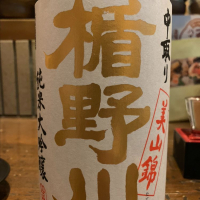 中取り
楯野川
美山錦
純米大吟醸